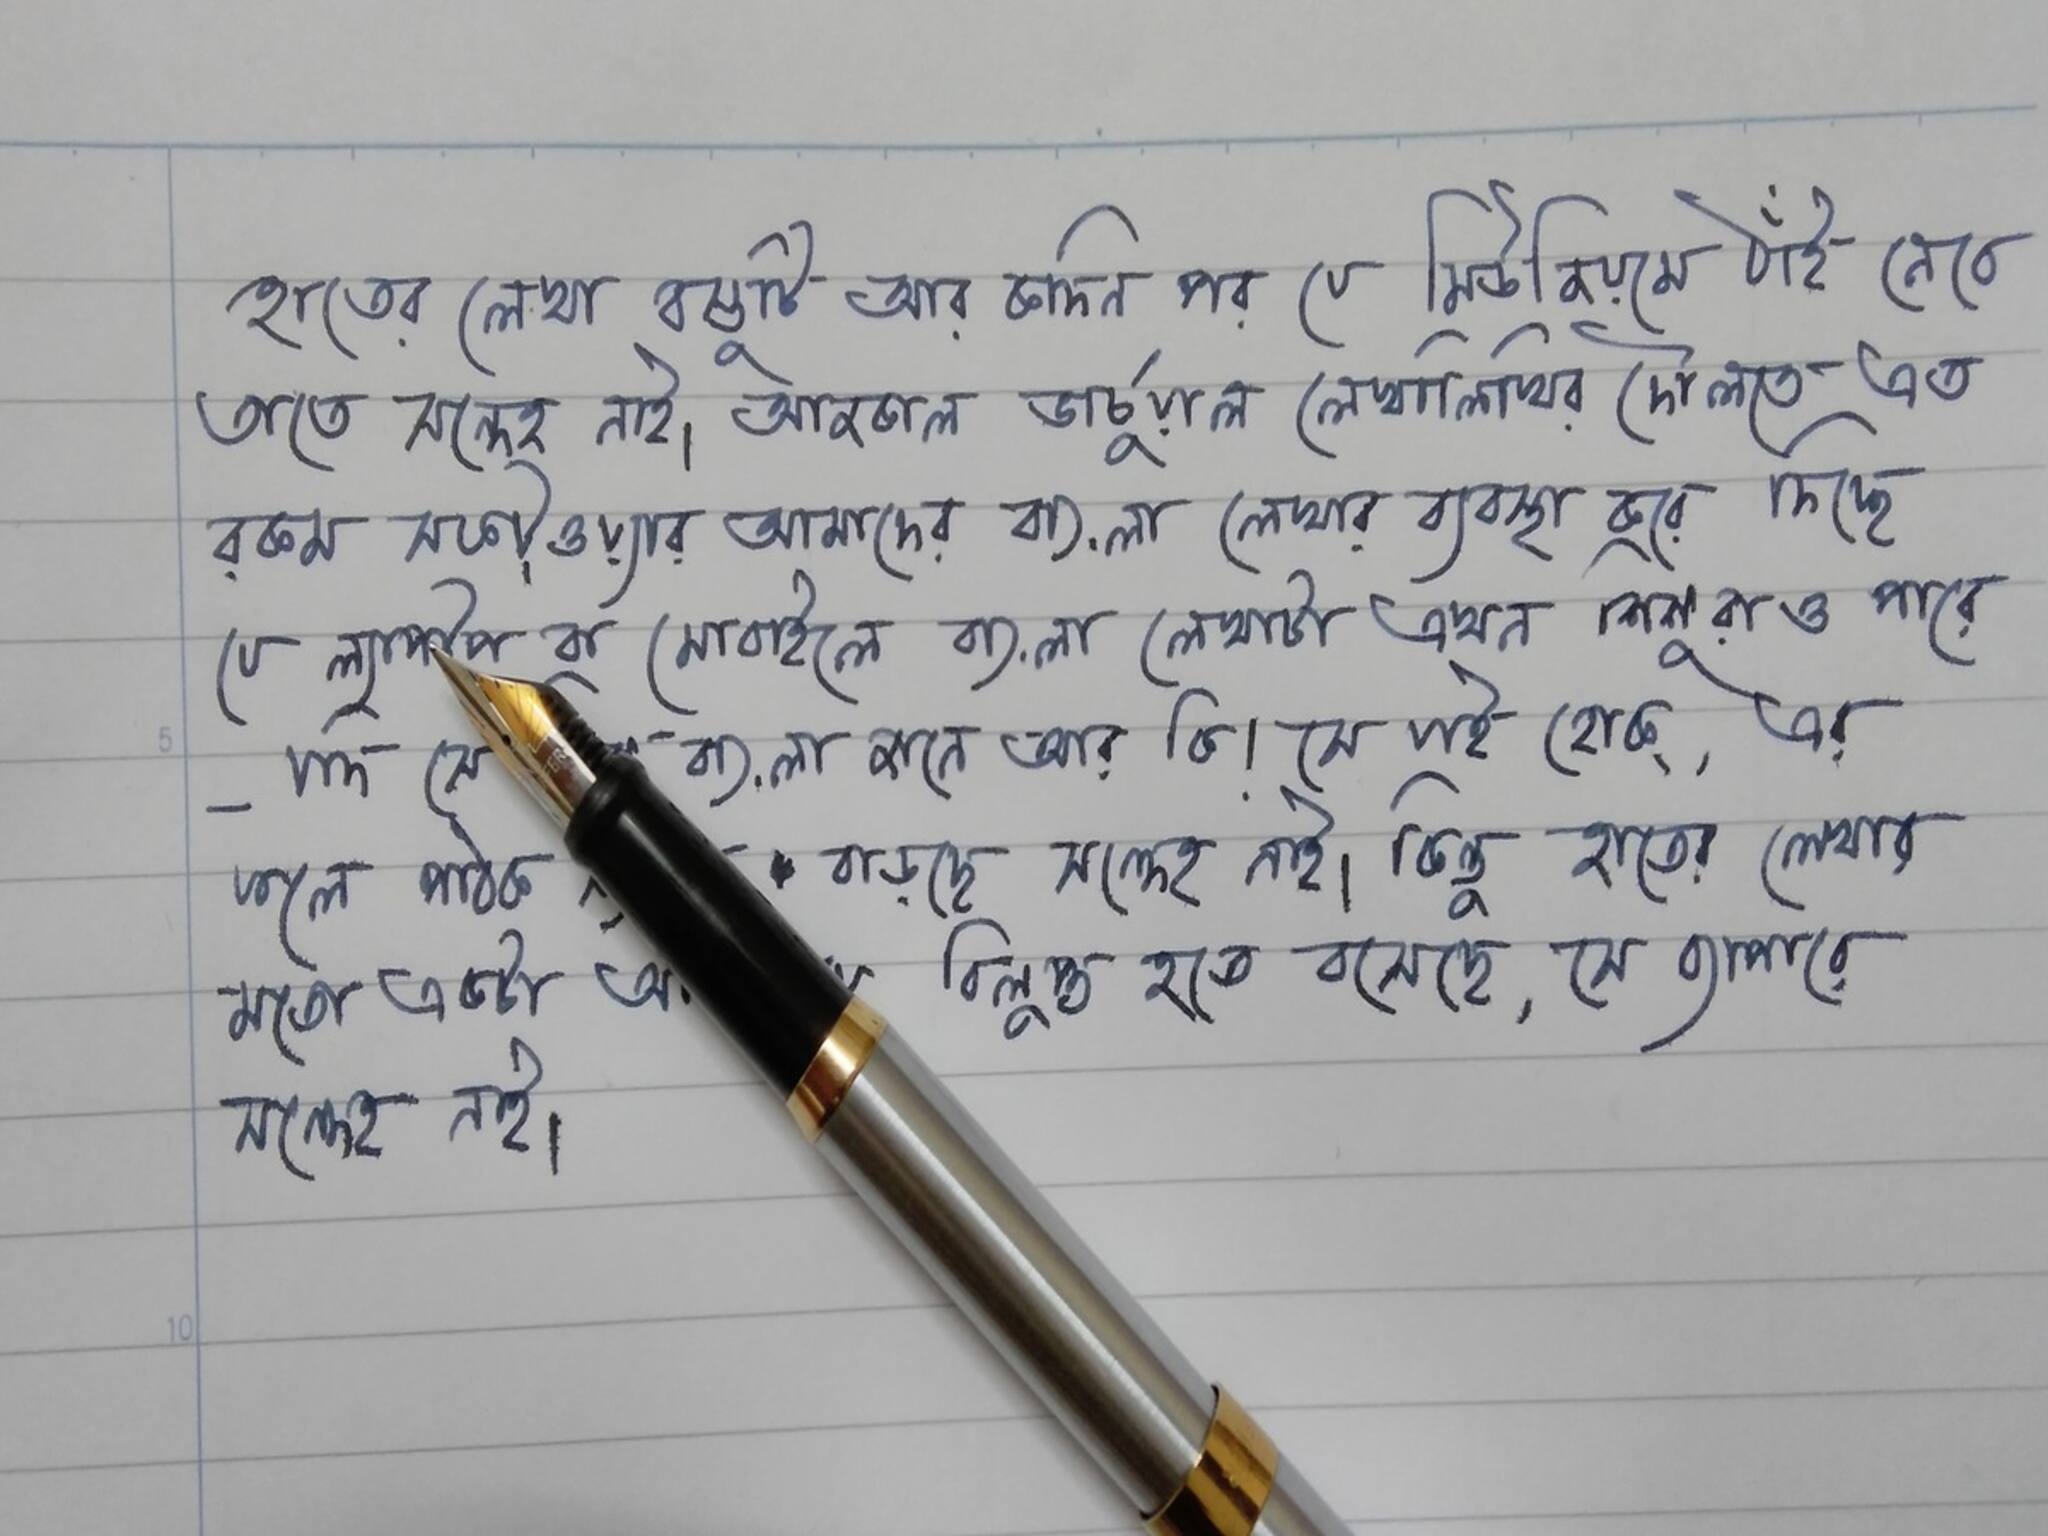 হাতের লেখা বস্তুটি আর কদিন পর যে মিউজিয়মে ঠাঁই নেবে
তাতে সন্দেহ নাই। আজকাল ভার্চুয়াল লেখালিখির দৌলতে এত
রকম সফট্ওয়্যার আমাদের বাংলা লেখার ব্যবস্থা করে দিচ্ছে
যে ল্যাপটপ বা মোবাইলে বাংলা লেখাটা এখন শিশুরাও পারে
– যদি সে বাংলা জানে আর কি! সে যাই হোক্, এর
ফলে পাঠক বাড়ছে সন্দেহ নাই। কিন্তু হাতের লেখার
মতো একটা বিলুপ্ত হতে বসেছে, সে ব্যাপারে
সন্দেহ নাই।
5
10